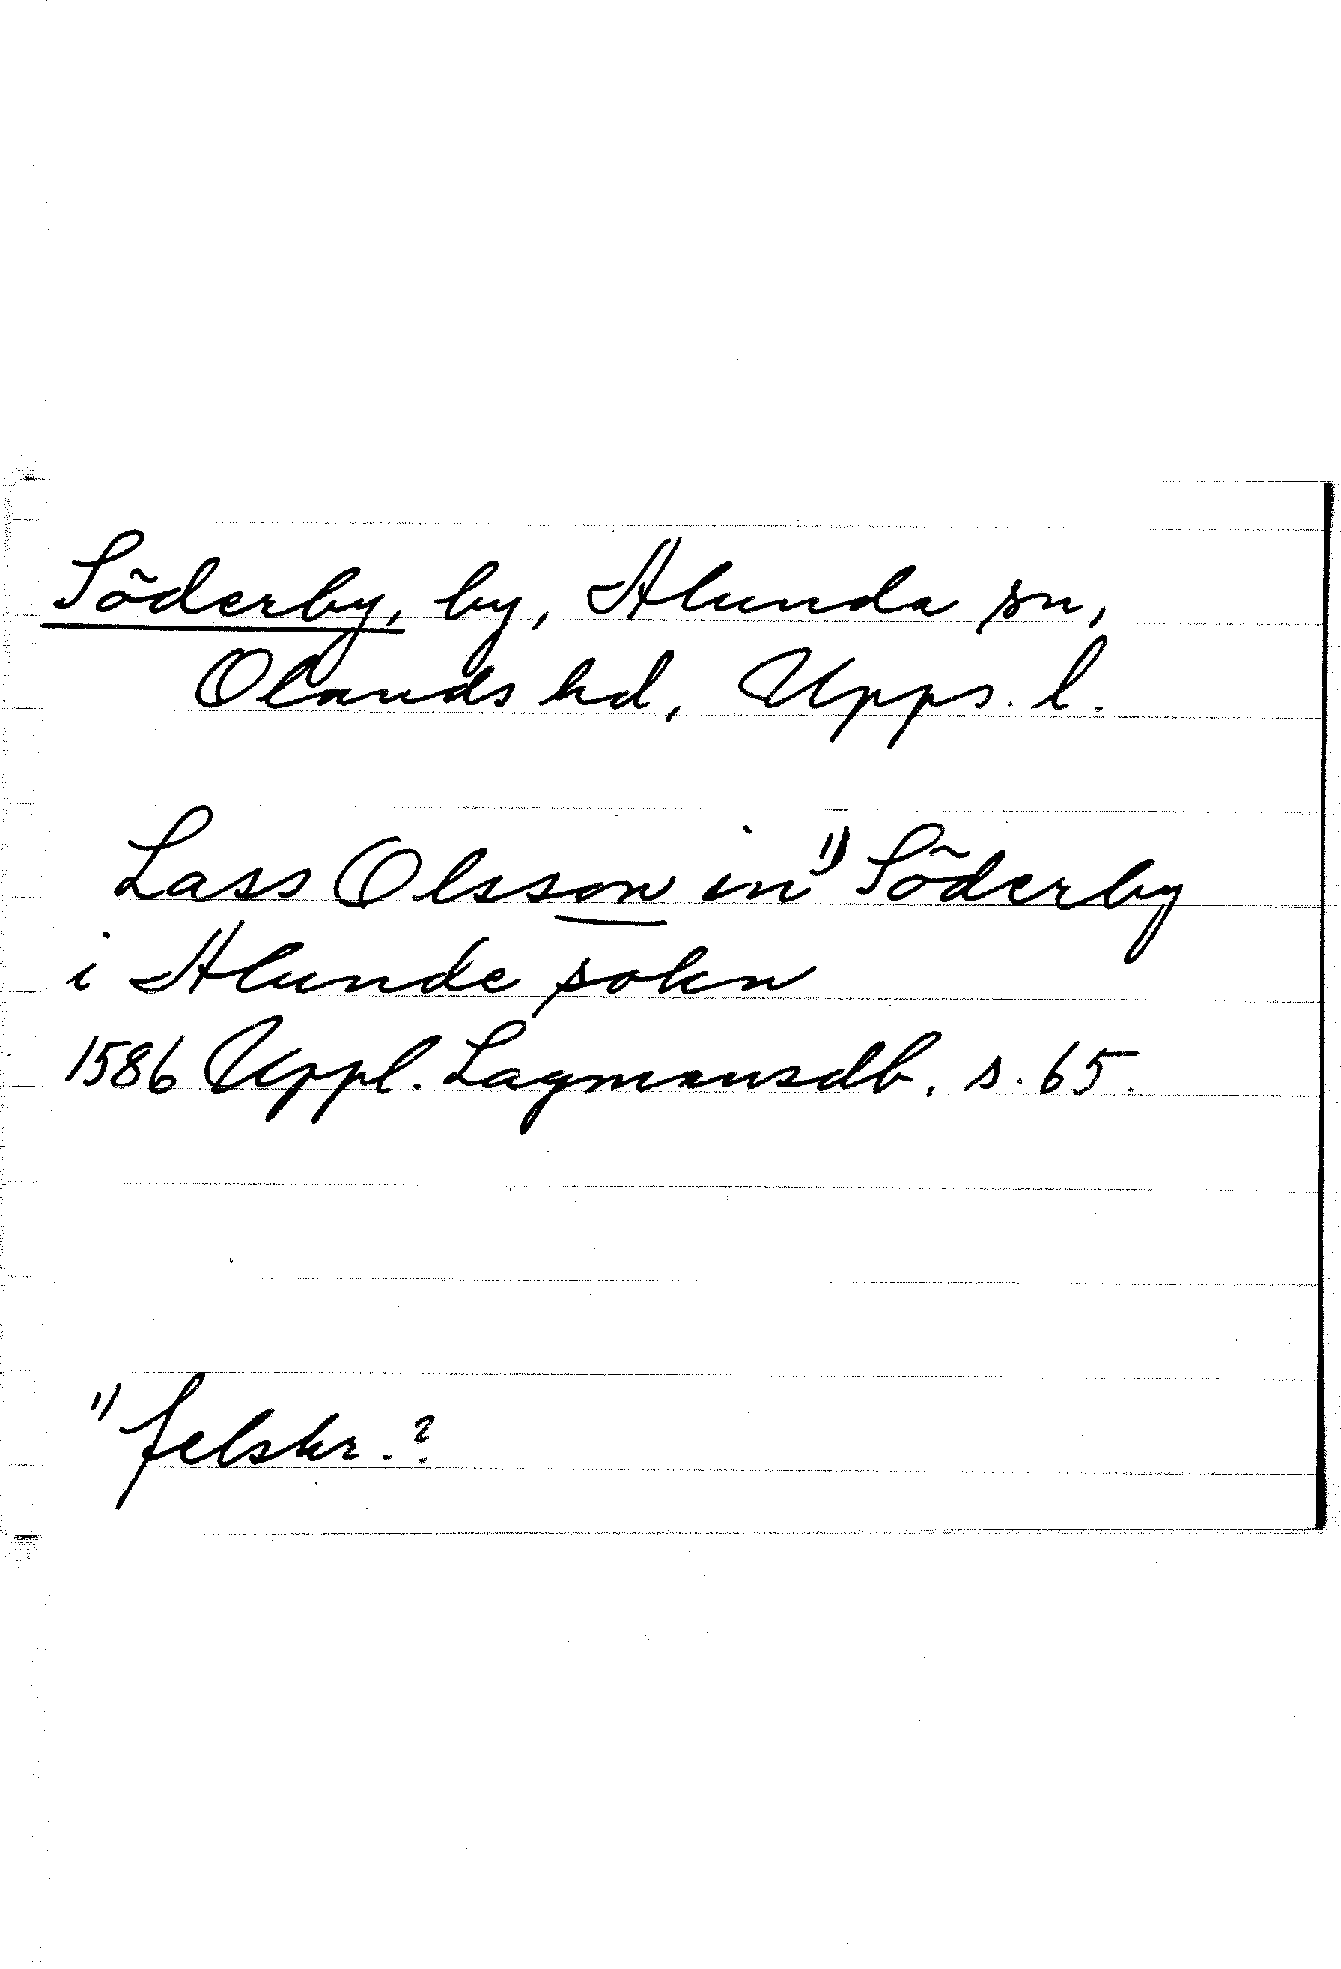 Söderby, by, Alunda sn,
Olands hd, Upps. l.
Lass Olsson in 1) Söderby
i Alunde sokn
1586 Uppl. Lagmansdb. s. 65.
1) felskr.?